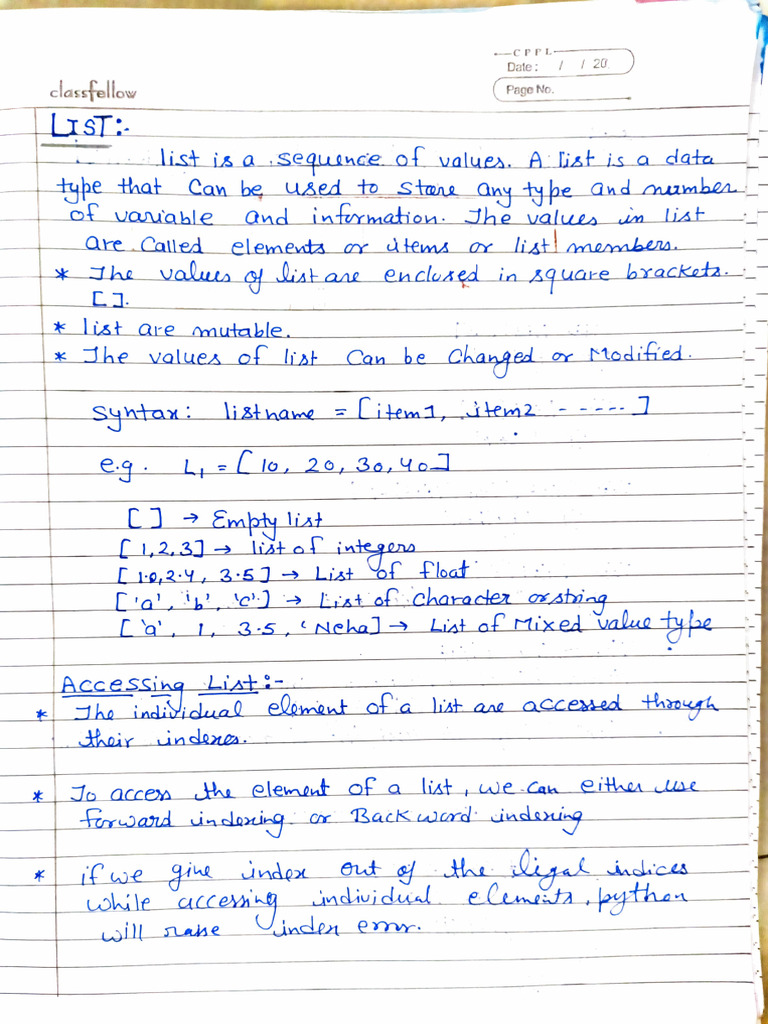 CPPL
Date : / / 20
classfellow
Page No.
LIST:-
list is a sequence of values. A list is a data
type that Can be used to store any type and number
of variable and information. The values in list
are Called elements or items or list members.
* The values of list are enclosed in square brackets.
[ ].
* list are mutable.
* The values of list Can be Changed or Modified.
Syntax: listname = [item1, item2 - - - - - ]
e.g. L1 = [10, 20, 30, 40]
[ ] → Empty list
[1,2,3] → list of integers
[1.0,2.4, 3.5] → List of float
['a', 'b', 'c'] → List of Character or string
['a', 1, 3.5, 'Neha] → List of Mixed value type
Accessing List:-
* The individual element of a list are accessed through
their indexes.
* To access the element of a list, we can either use
forward indexing or Backword indexing
* if we give index out of the legal indices
while accessing individual elements, python
will raise index error.